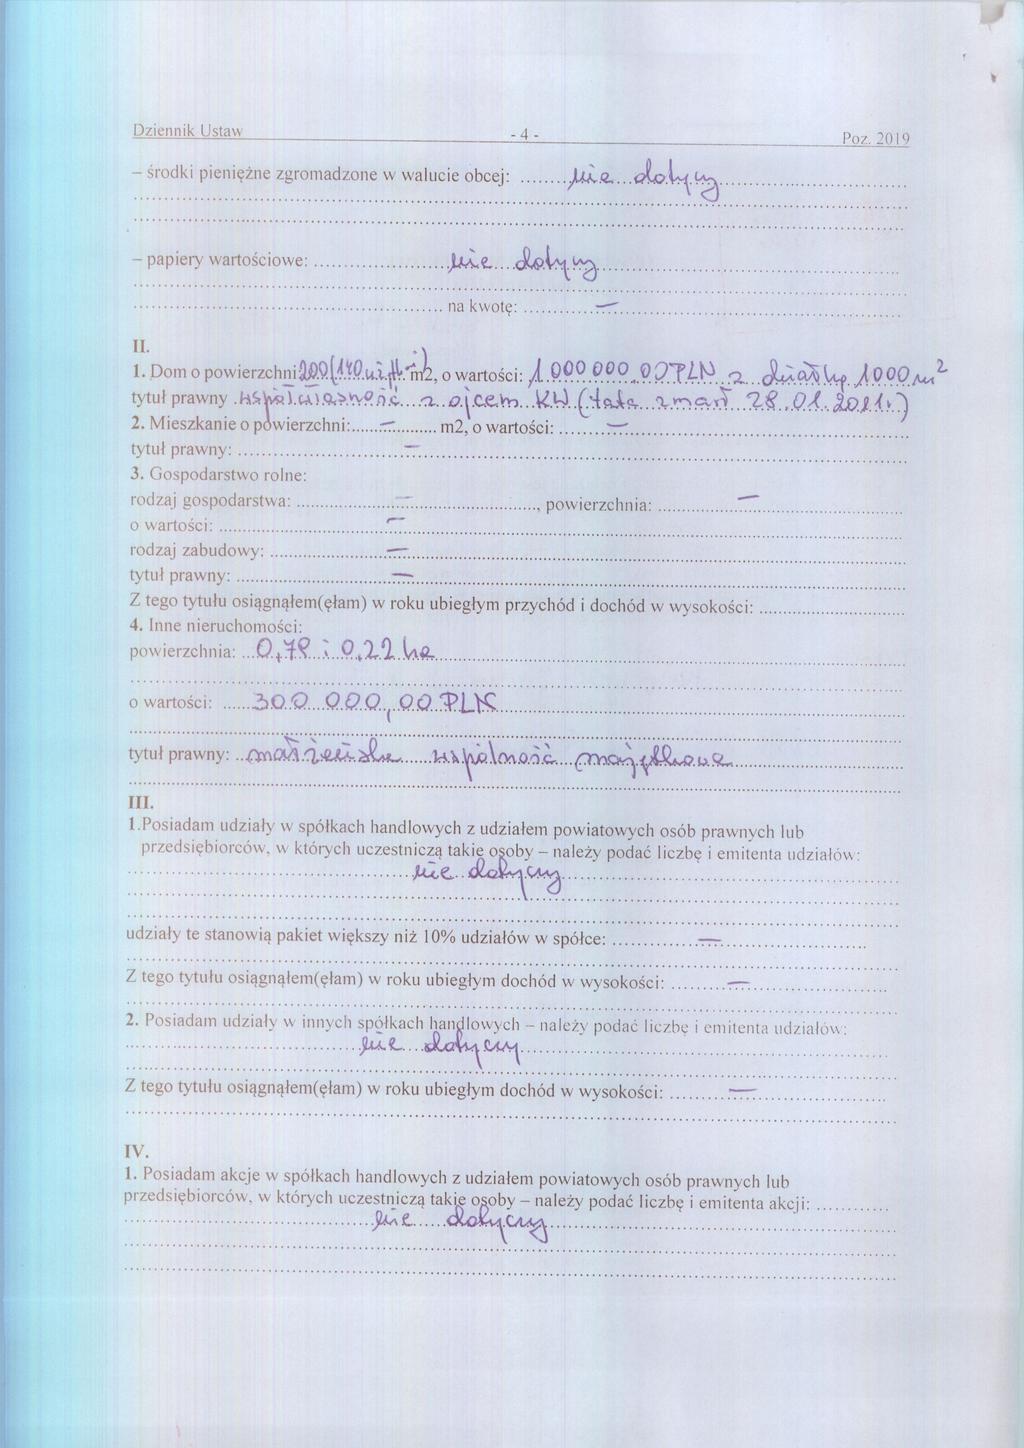 Dziennik Ustaw - 4 - Poz. 2019
– środki pieniężne zgromadzone w walucie obcej: nie dotyczy
– papiery wartościowe: nie dotyczy
na kwotę: —
II.
1. Dom o powierzchni: 200 (140 uż. m²) m2, o wartości: 1 000 000,00 PLN z działką 1000 m²
tytuł prawny: współwłasność z ojcem KW (tata zmarł 28.01.2021r)
2. Mieszkanie o powierzchni: — m2, o wartości: —
tytuł prawny: —
3. Gospodarstwo rolne:
rodzaj gospodarstwa: — , powierzchnia: —
o wartości: —
rodzaj zabudowy: —
tytuł prawny: —
Z tego tytułu osiągnąłem(ęłam) w roku ubiegłym przychód i dochód w wysokości:
4. Inne nieruchomości:
powierzchnia: 0,78 i 0,22 ha
o wartości: 300 000,00 PLN
tytuł prawny: małżeńska wspólność majątkowa
III.
1.Posiadam udziały w spółkach handlowych z udziałem powiatowych osób prawnych lub
przedsiębiorców, w których uczestniczą takie osoby – należy podać liczbę i emitenta udziałów:
nie dotyczy
udziały te stanowią pakiet większy niż 10% udziałów w spółce: —
Z tego tytułu osiągnąłem(ęłam) w roku ubiegłym dochód w wysokości: —
2. Posiadam udziały w innych spółkach handlowych – należy podać liczbę i emitenta udziałów:
nie dotyczy
Z tego tytułu osiągnąłem(ęłam) w roku ubiegłym dochód w wysokości: —
IV.
1. Posiadam akcje w spółkach handlowych z udziałem powiatowych osób prawnych lub
przedsiębiorców, w których uczestniczą takie osoby – należy podać liczbę i emitenta akcji:
nie dotyczy